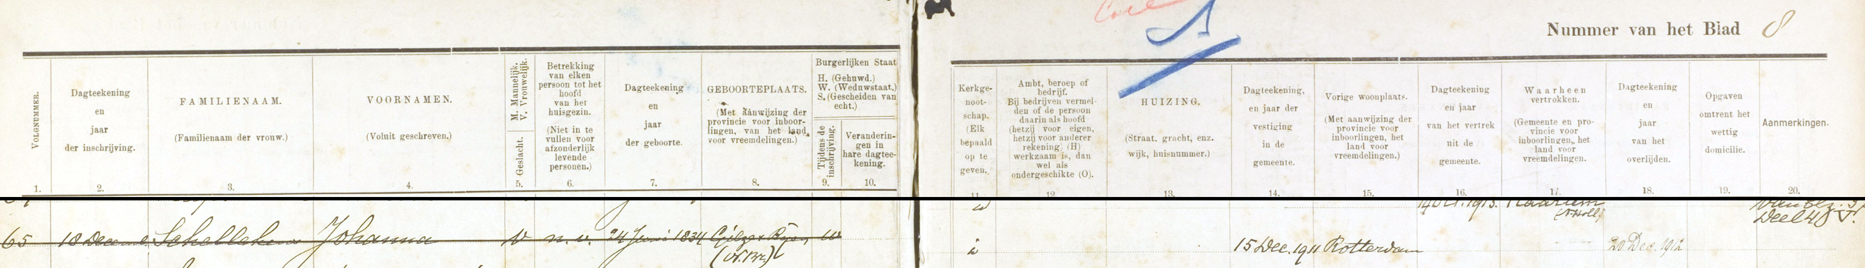 Nummer van het Blad 8
VOLGNUMMER.
1.
Dagteekening
en
jaar
der inschrijving.
2.
FAMILIENAAM.
(Familienaam der vrouw.)
3.
VOORNAMEN.
(Voluit geschreven.)
4.
M. Mannelijk.
V. Vrouwelijk.
Geslacht.
5.
Betrekking
van elken
persoon tot het
hoofd
van het
huisgezin.
(Niet in te
vullen voor
afzonderlijk
levende
personen.)
6.
Dagteekening
en
jaar
der geboorte.
7.
GEBOORTEPLAATS.
(Met aanwijzing der
provincie voor inboor-
lingen, van het land
voor vreemdelingen.)
8.
Burgerlijken Staat
H. (Gehuwd.)
W. (Weduwstaat.)
S. (Gescheiden van
echt.)
Tijdens de
inschrijving.
9.
Veranderin-
gen in
hare dagtee-
kening.
10.
Kerkge-
noot-
schap.
(Elk
bepaald
op te
geven.)
11
Ambt, beroep of
bedrijf.
Bij bedrijven vermel-
den of de persoon
daarin als hoofd
(hetzij voor eigen,
hetzij voor anderer
rekening) (H)
werkzaam is, dan
wel als
ondergeschikte (O).
12
HUIZING.
(Straat, gracht, enz.
wijk, huisnummer.)
13.
Dagteekening,
en jaar der
vestiging
in de
gemeente.
14.
Vorige woonplaats.
(Met aanwijzing der
provincie voor
inboorlingen, het
land voor
vreemdelingen.)
15.
Dagteekening
en jaar
van het vertrek
uit de
gemeente.
16.
Waarheen
vertrokken.
(Gemeente en pro-
vincie voor
inboorlingen, het
land voor
vreemdelingen.
17.
Dagteekening
en
jaar
van het
overlijden.
18.
Opgaven
omtrent het
wettig
domicilie.
19.
Aanmerkingen.
20.
1913. Haarlem
(N.Holl)
Deel 48
65 18 Dec Johanna v n.v. 24 Juni 1834 w
(N.Br.)
15 Dec. 1911 Rotterdam 20 Dec. 1912